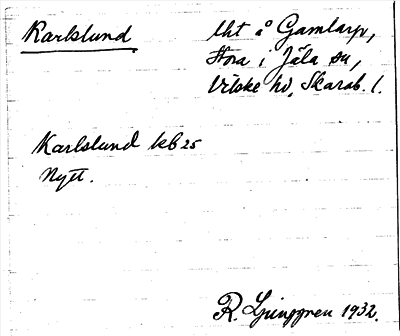 Karlslund
lht å Gamlarp,
Stora i Jäla sn,
Vilske hd, Skarab. l.
Karlslund kb 25
Nytt.
R. Ljunggren 1932.